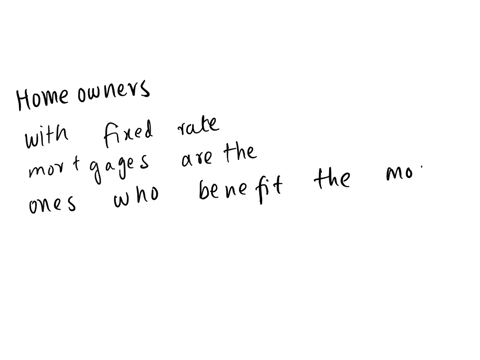 Home owners
with fixed rate
mortgages are the
ones who benefit the